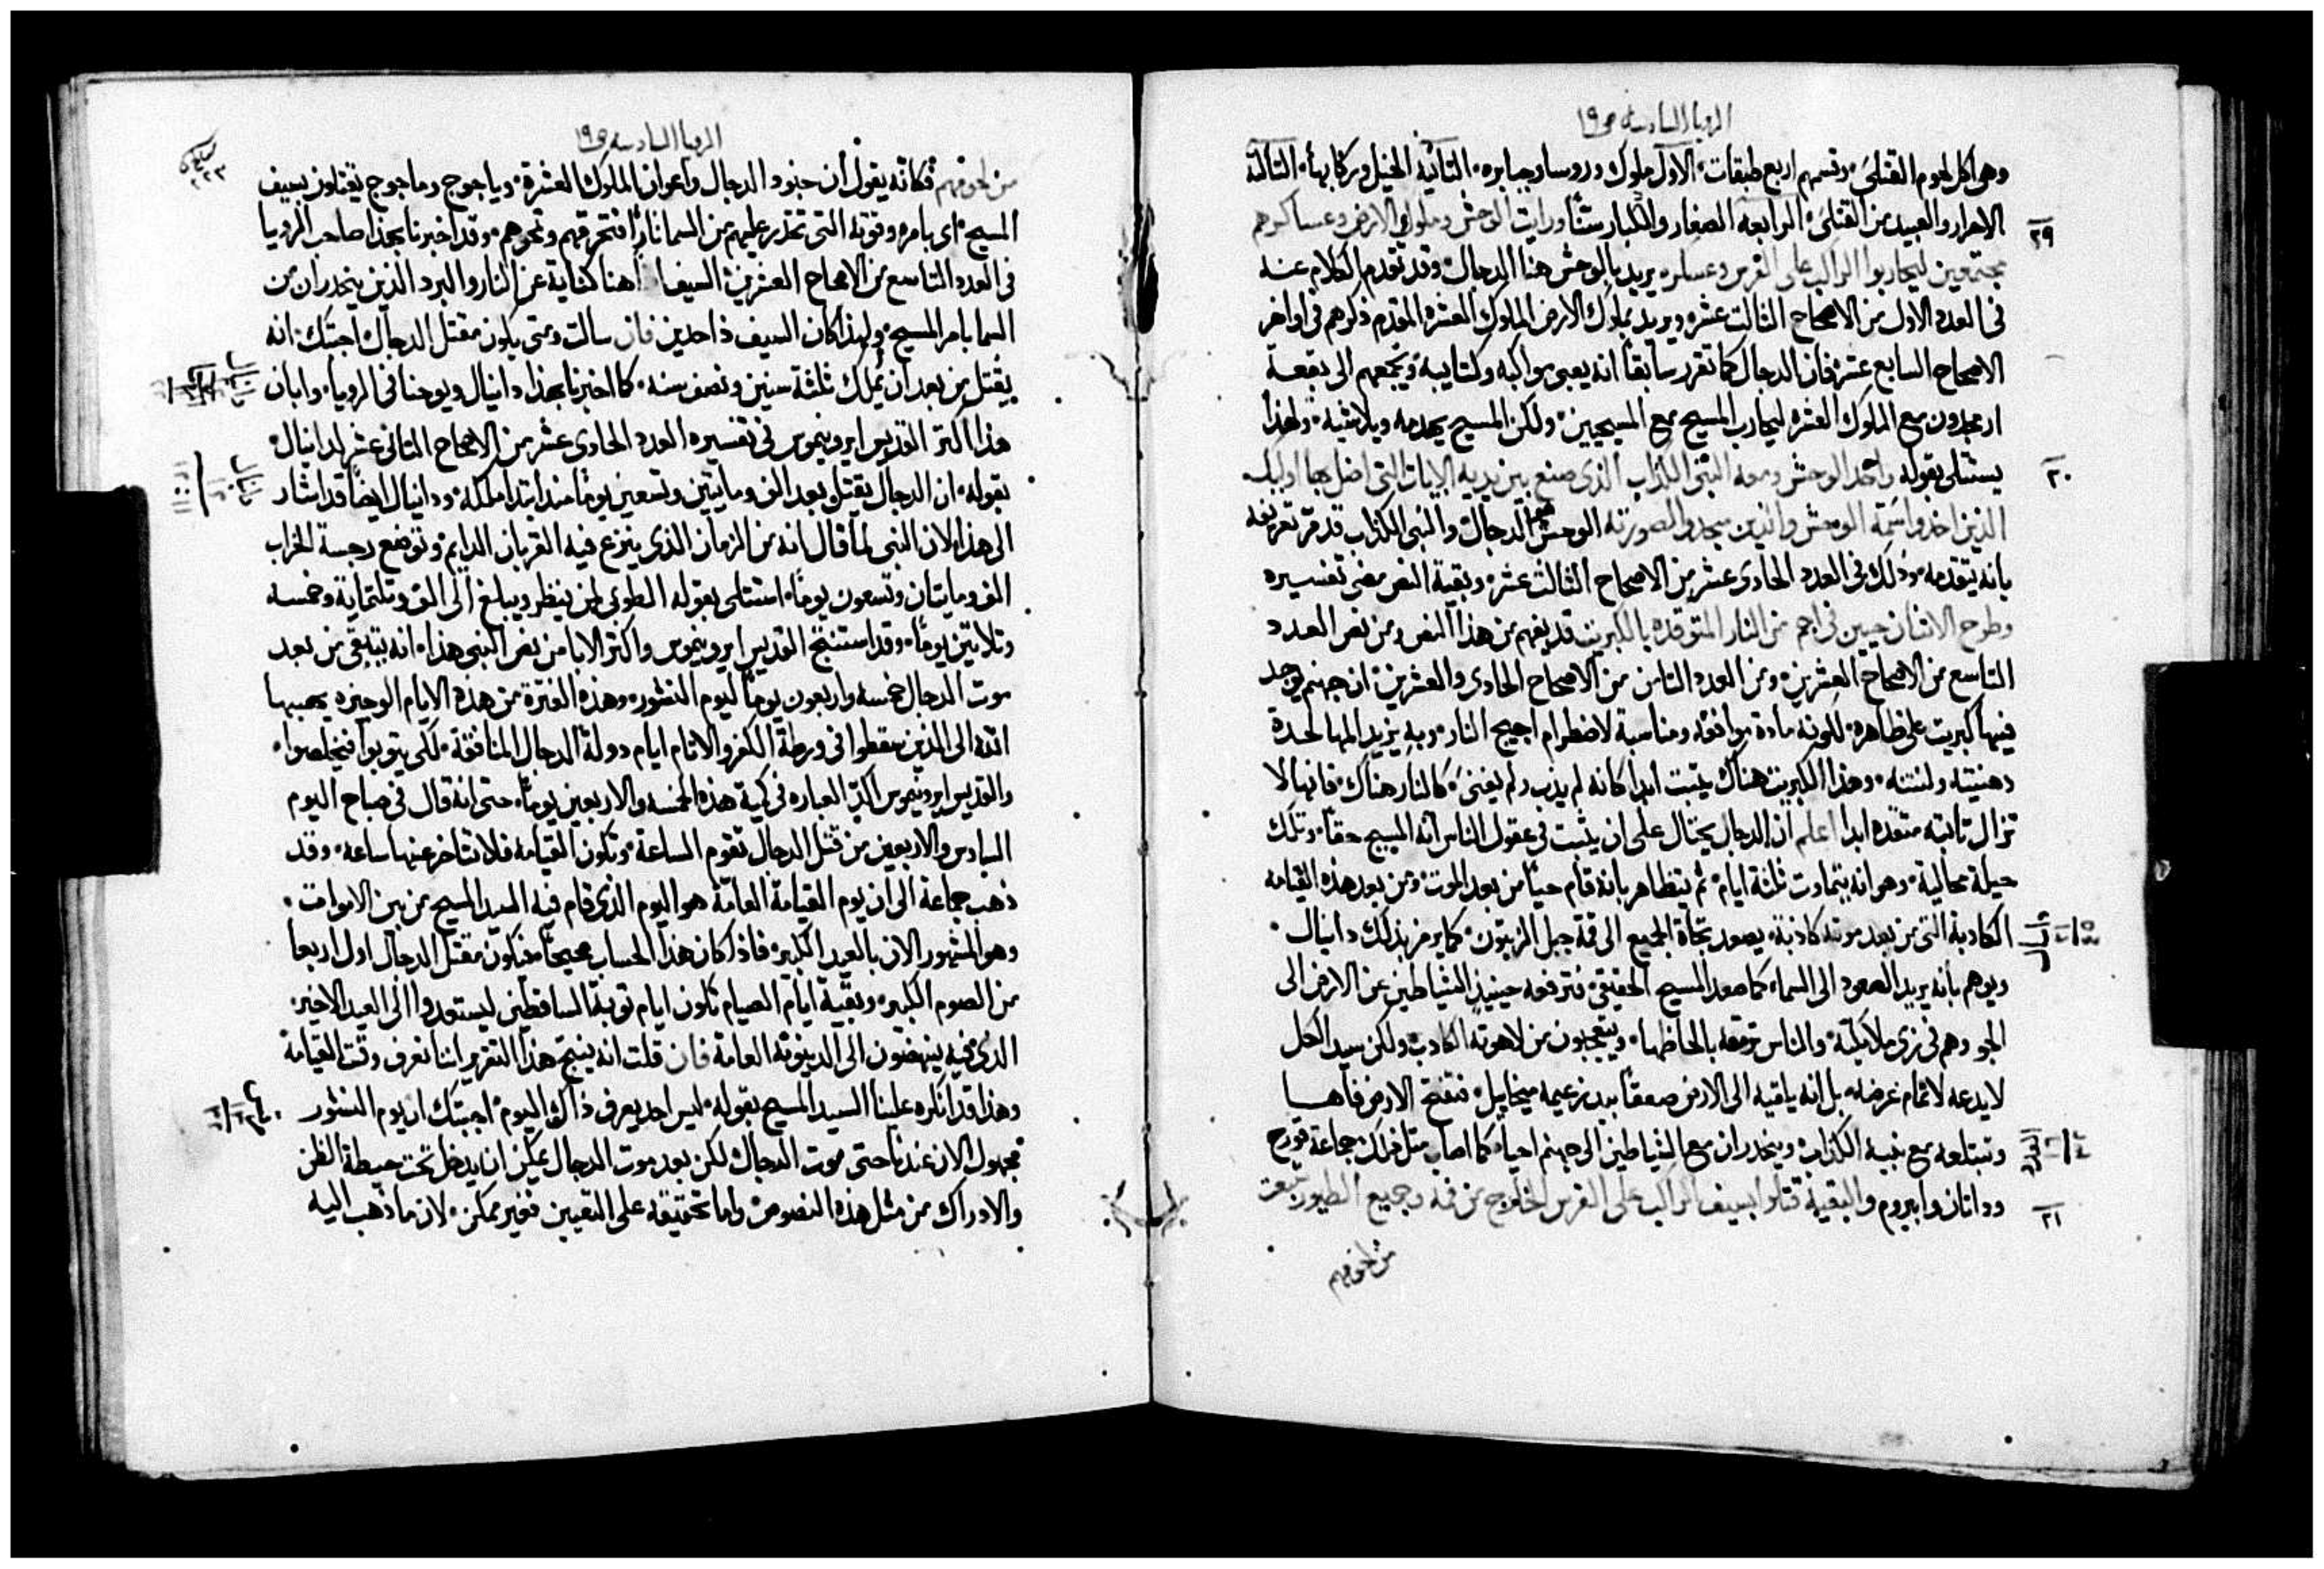 الرويا السادسة ص ١٩
وهي اكل لحوم القتلى، وقسمهم اربع طبقات، الاول ملوك وروسا وجبابره، الثانية الخيل وركابها، الثالثة
الاحرار والعبيد من القتلى، الرابعه الصغار والكبار سنًا ورايت الوحش وملوك الارض وعساكرهم
٢٩
مجتمعين ليحاربوا الراكب على الفرس وعسكره يريد بالوحش هنا الدجال، وقد تقدم الكلام عنه
في العدد الاول من الاصحاح الثالث عشر، ويريد بملوك الارض الملوك العشره المقدم ذكرهم في اواخر
الاصحاح السابع عشر، فان الدجال كما تقرر سابقا انه يعبي مواكبه وكتايبه ويجمعهم الى بقعة
ارمجدون مع الملوك العشره ليحارب المسيح مع المسيحيين، ولكن المسيح يهدمه ويلاشيه، ولهذا
يستتلى بقوله واخذ الوحش ومعه النبي الكذاب الذي صنع بين يديه الايات التي اضل بها اوليك
٢٠
الذين اخذوا سمة الوحش والذين سجدوا لصورته الوحش هو الدجال والنبي الكذاب قد مر تعريفه
بانه يتقدمه، وذلك في العدد الحادي عشر من الاصحاح الثالث عشر، وبقية النص مضى تفسيره
وطرح الاثنان حيين في اجم من النار المتوقده بالكبريت قد يفهم من هذا النص ومن نص العدد
التاسع من الاصحاح العشرين، ومن العدد الثامن من الاصحاح الحادي والعشرين، ان جهنم يوجد
فيها كبريت على ظاهره، لكونه مادة موافقة ومناسبة لاضطرام اجيج النار، وبه يزيد المها لحدة
دهنيته ولنتنه، وهذا الكبريت هناك يثبت ابدا كانه لم يذب ولم يفنى، كالنار هناك، فانها لا
تزال ثابته متقده ابدا اعلم ان الدجال يحتال على ان يثبت في عقول الناس انه المسيح حقًا، وتلك
حيلة محالية، وهو انه يتماوت ثلثة ايام، ثم يتظاهر بانه قام حيًا من بعد الموت، ومن بعد هذه القيامه
الكادبة التي من بعد موته كاذبة، يصعد تجاة الجميع الى قمة جبل الزيتون، كما يرمز بذلك دانيال،
ويوهم بانه يريد الصعود الى السماء كما صعد المسيح الحقيقي، فترفعه حينيذ الشياطين عن الارض الى
الجو وهم في زي ملايكة، والناس ترمقه بالحاظها، ويتعجبون من لاهوته الكادب، ولكن سيد الكل
لا يدعه لاتمام غرضه، بل انه يلقيه الى الارض صعقًا بيد زعيمه ميخاييل، فتفتح الارض فاهــا
وتبتلعه مع نبيه الكذاب، وينحدران مع الشياطين الى جهنم احيا، كما اصاب مثل ذلك جماعة قورح
وداثان وابيروم والبقية قتلوا بسيف الراكب على الفرس الخارج من فمه وجميع الطيور شبعت
٢١
من لحومهم
الرويا السادسه ص ١٩
من لحومهم فكانه يقول ان جنود الدجال واعوان الملوك العشرة، وياجوج وماجوج يقتلون بسيف
المسيح، اي بامره وقوته التي تحدر عليهم من السما نارا فتحرقهم وتمحوهم، وقد اخبرنا بهذا صاحب الرويا
في العدد التاسع من الاصحاح العشرين، السيف هنا كناية عن النار والبرد الذين ينحدران من
السما بامر المسيح، ولهذا كان السيف ذا حدين فان سالت ومتى يكون مقتل الدجال، اجبتك، انه
يقتل من بعد ان يملك ثلثة سنين ونصف سنه، كما اخبرنا بهذا دانيال ويوحنا في الرويا، وابان
هذا اكثر القديس ايرونيموس في تفسيره العدد الحادي عشر من الاصحاح الثاني عشر لدانيال
بقوله، ان الدجال يقتل بعد الف ومايتين وتسعين يومًا منذ ابتدا ملكه، ودانيال ايضًا قد اشار
الى هذا، لان النبي لما قال انه من الزمان الذي ينزع فيه القربان الدايم، وتوضع رجسة الخراب
الف ومايتان وتسعون يومًا، استتلى بقوله الطوبى لمن ينتظر ويبلغ الى الف وثلثماية وخمسه
وثلاثين يومًا، وقد استنتج القديس ايرونيموس واكثر الابا من نص النبي هذا، انه يتبقى من بعد
موت الدجال خمسه واربعون يومًا ليوم النشور، وهذه الفترة من هذه الايام الوجيزه يهبها
الله الى الذين سقطوا في ورطة الكفر والاثام ايام دولة الدجال المنافقة، لكي يتوبوا فيخلصوا،
والقديس ايرونيموس اكد العباره في كمية هذه الخمسه والاربعين يومًا، حتى انه قال في صباح اليوم
السادس والاربعين من قتل الدجال تقوم الساعة، وتكون القيامه فلا تتاخر عنها ساعه، وقد
ذهب جماعة الى ان يوم القيامة العامة هو اليوم الذي قام فيه السيد المسيح من بين الاموات،
وهو المشهور الان بالعيد الكبير، فاذا كان هذا الحساب صحيحًا فيكون مقتل الدجال اول اربعا
من الصوم الكبير، وبقية ايام الصيام تكون ايام توبة الساقطين ليستعدوا الى العيد الاخير،
الذي فيه ينهضون الى الدينونة العامة فان قلت انه ينتج هذا التقرير اننا نعرف وقت القيامة
وهذا قد انكره علينا السيد المسيح بقوله، ليس احد يعرف ذاك اليوم، اجبتك ان يوم النشور
مجهول الان عندنا حتى موت الدجال، لكن بعد موت الدجال يمكن ان يدخل تحت حيطة الظن
والادراك من مثل هذه النصوص، واما تحقيقه على التعيين فغير ممكن، لان ما ذهب اليه